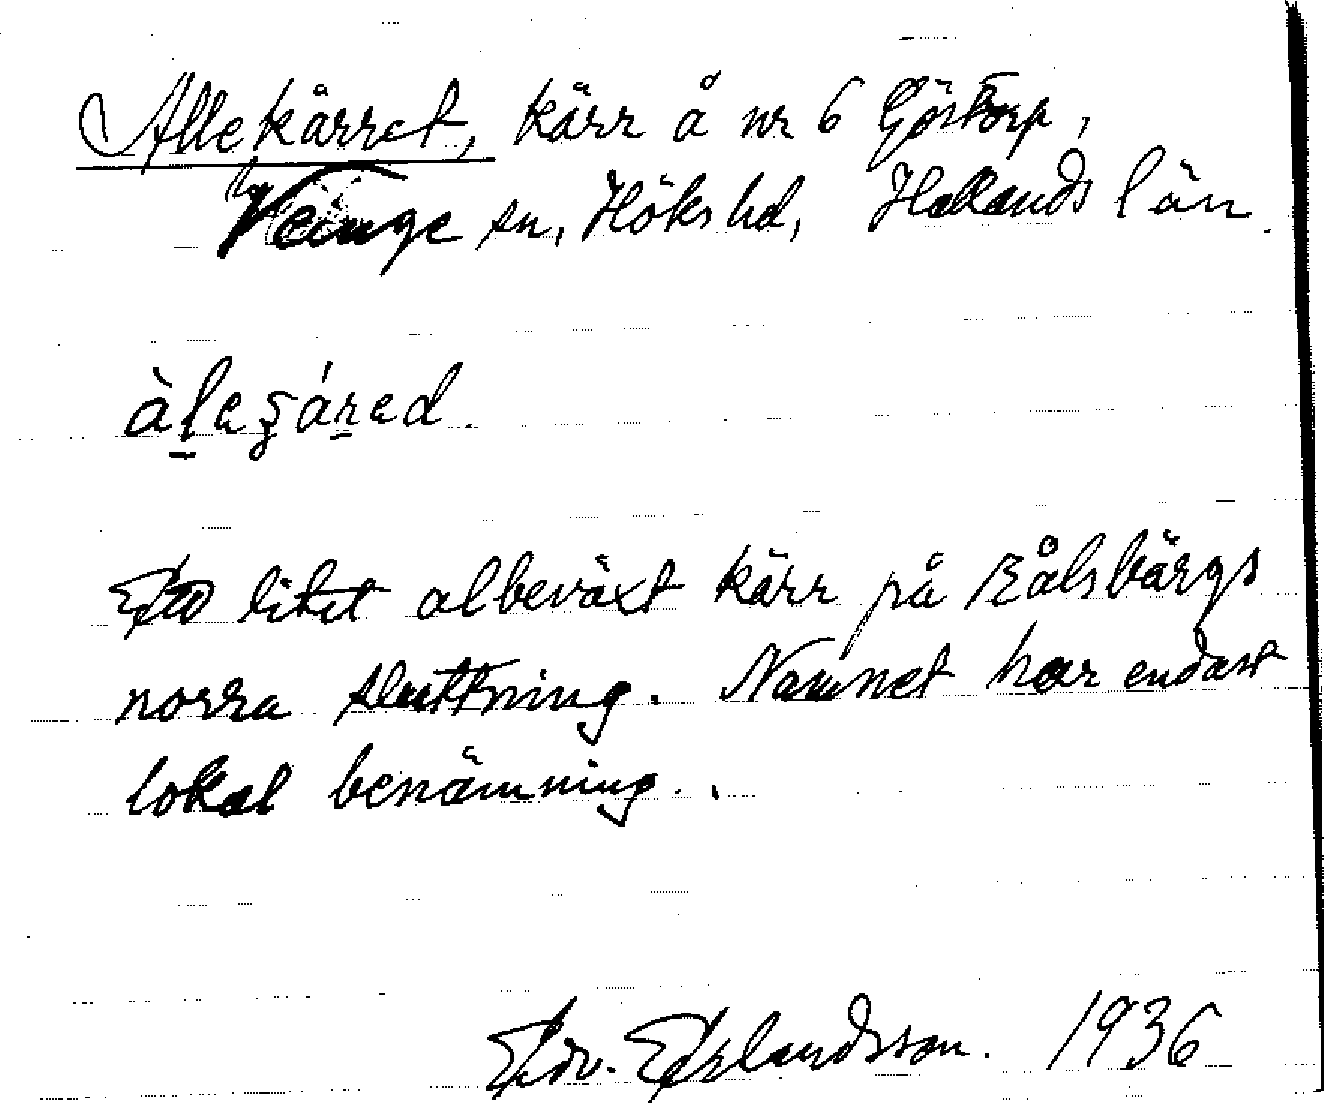 Allekärret, kärr å nr 6 Göstorp,
Veinge sn, Höks hd, Hallands län.
àleʂáred.
Ett litet albeväxt kärr på Bålsbärgs
norra sluttning. Namnet har endast
lokal benämning.
Edv. Erlandsson. 1936